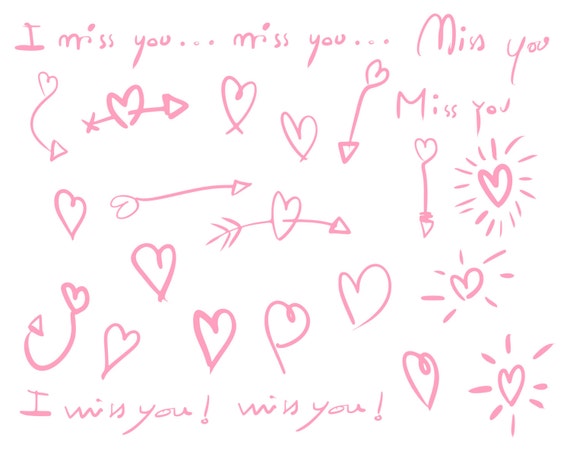 I miss you... miss you... Miss you
Miss you
I miss you! miss you!